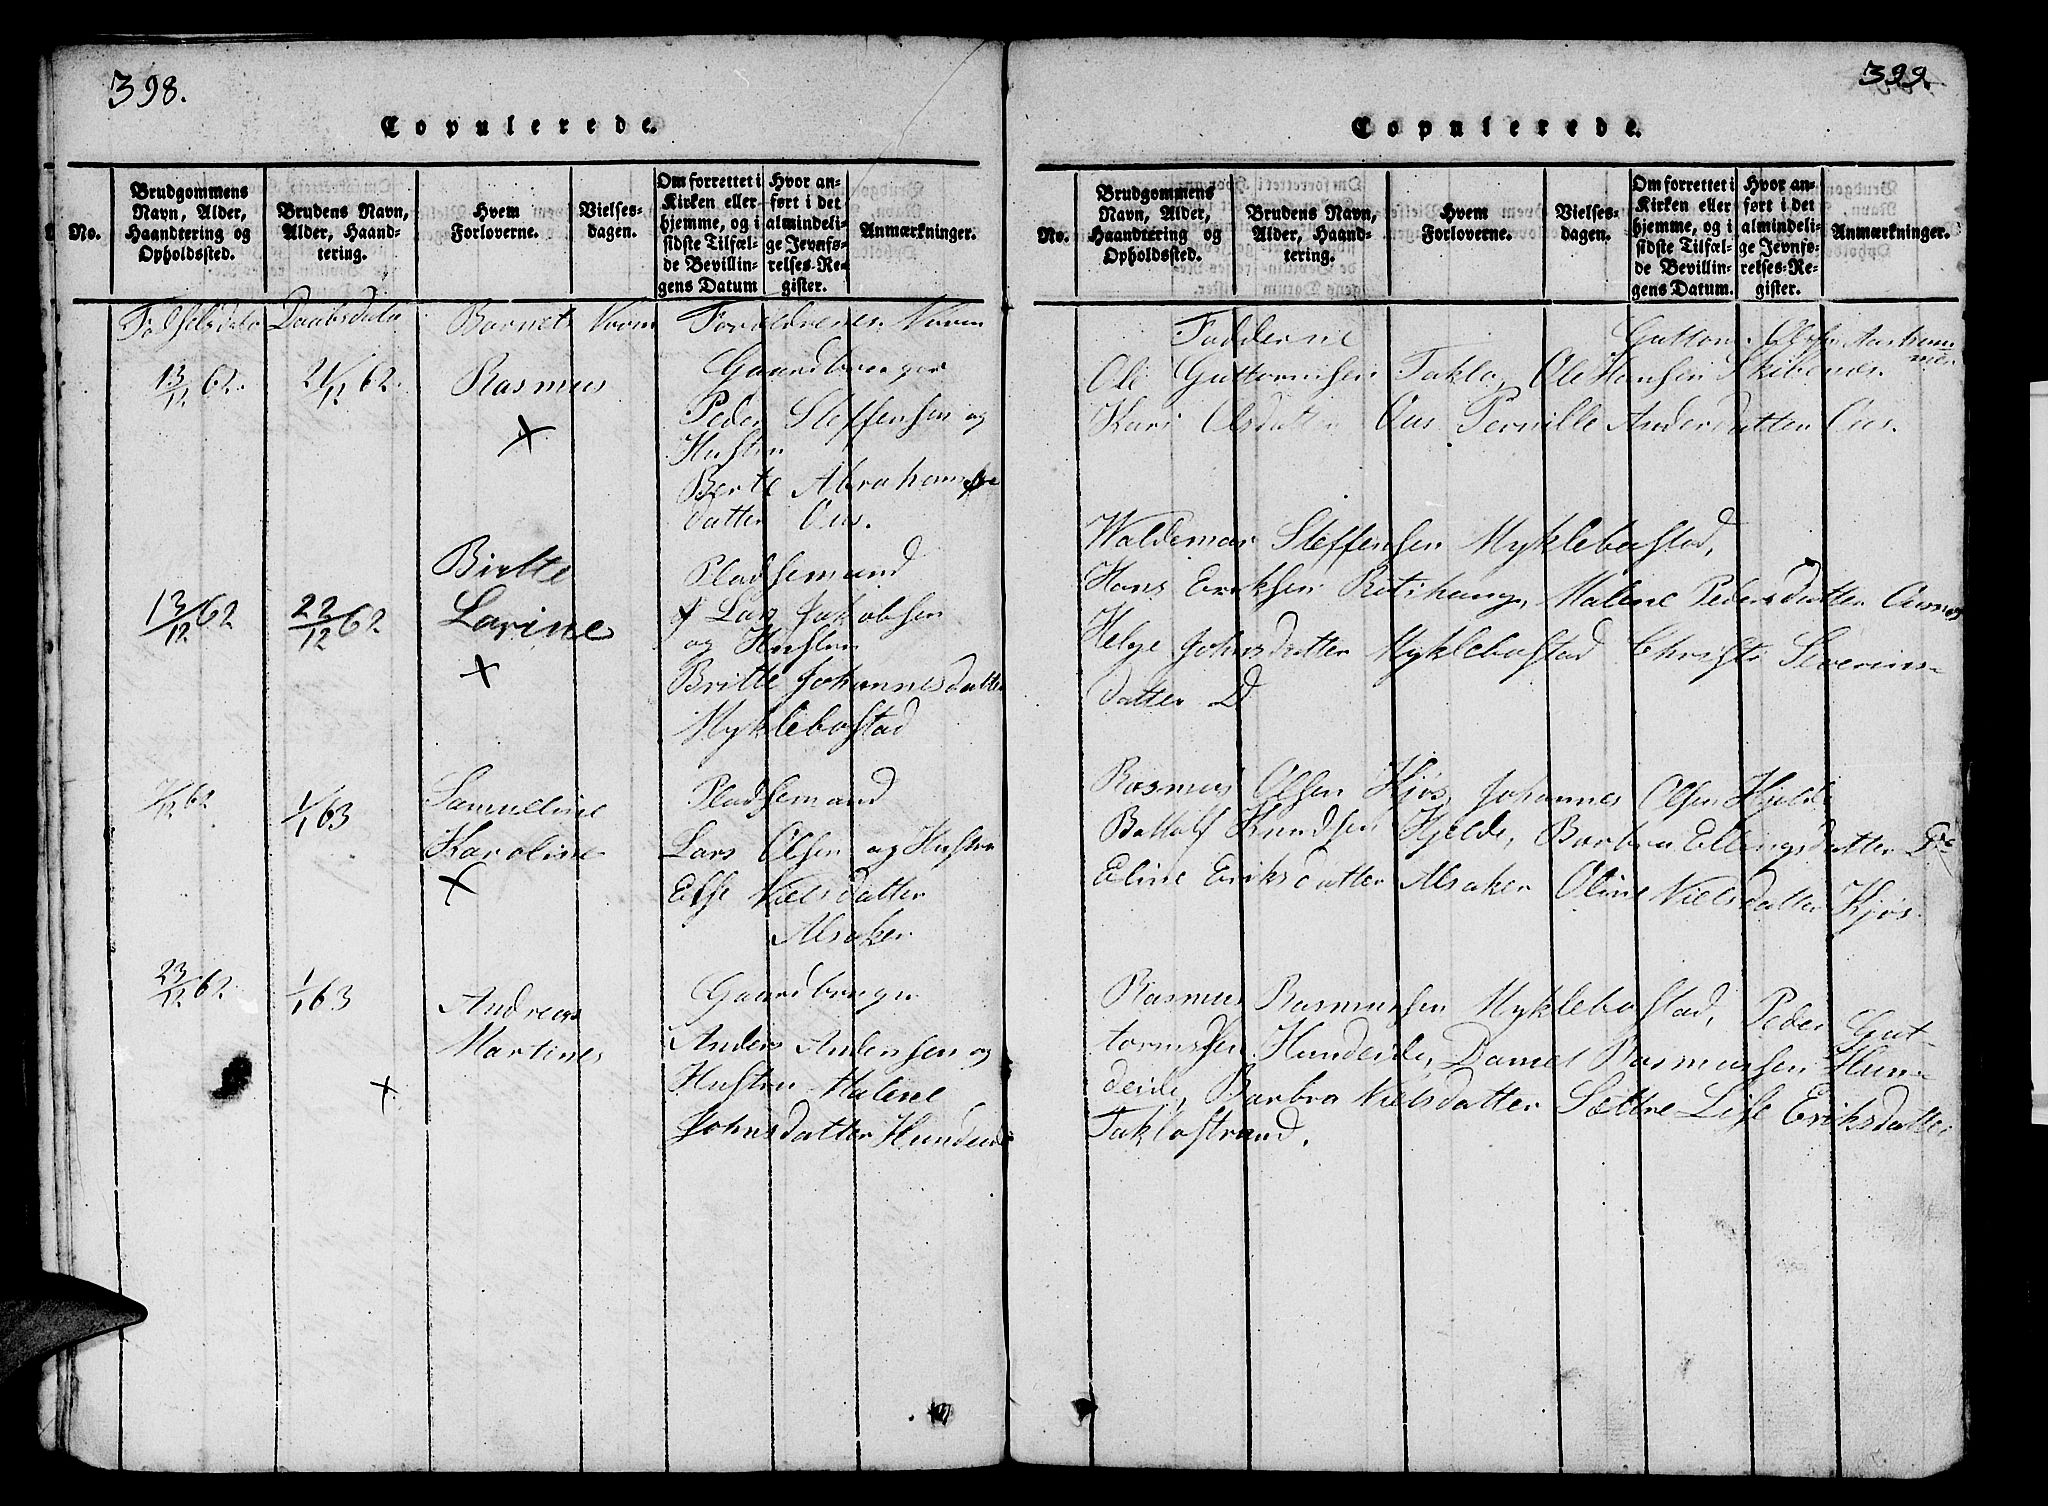 398.
Copulerede.
No.
Brudgommens Navn, Alder, Haandtering og Opholdssted.
Brudens Navn, Alder, Haandtering.
Hvem Forloverne.
Vielsesdagen.
Om forrettet i Kirken eller hjemme, og i sidste Tilfælde Bevillingens Datum
Hvor anført i det almindelige Jevnførelses-Register.
Anmærkninger.
Fødselsdato Daabsdato Barnets Navn Forældrenes Navn
13/12 62. 21/12 62. Rasmus Gaardbruger
Peder Steffensen og
x Hustru
Berte Abrahams
datter Aus.
Birtte Pladsemand
13/12 62 22/12 62 Larine Lars Jakobsen
og Hustru
x Britte Johannesdatter
Myklebostad
7/12 62 Sameline Pladsemand
1/1 63 Karoline Lars Olsen og Hustru
x Else Nielsdatter
Alsaker
23/12 62 1/1 63 Andreas Gaardbruger
Martines Anders Andersen og
x Hustru Malene
Johnsdatter Hundeide
399.
Copulerede.
No.
Brudgommens Navn, Alder, Haandtering og Opholdssted.
Brudens Navn, Alder, Haandtering.
Hvem Forloverne.
Vielsesdagen.
Om forrettet i Kirken eller hjemme, og i sidste Tilfælde Bevillingens Datum.
Hvor anført i det almindelige Jevnførelses-Register.
Anmærkninger.
Fadderne
Guttorm
Ole Guttormsen Taklo, Ole Hansen Skibenes
Kari Olsdatter Aus Pernille Andersdatter Aus.
Waldemar Steffensen Myklebostad,
Hans Eriksen Malene Pedersdatter
Helge Johnsdatter Myklebostad Christi Severins-
datter D
Rasmus Olsen Kjøs, Johannes Olsen Hjelde
Ballolf Knudsen Hjelde, Barbra Ellingsdatter
Eline Eriksdatter Alsaker Oline Nielsdatter Kjøs.
Rasmus Rasmussen Myklebostad, Peder Gut-
tormsen Hundeide, Daniel Rasmussen Hun-
deide, Barbra Nielsdatter Sættre Lise Eriksdatter
Taklostrand.